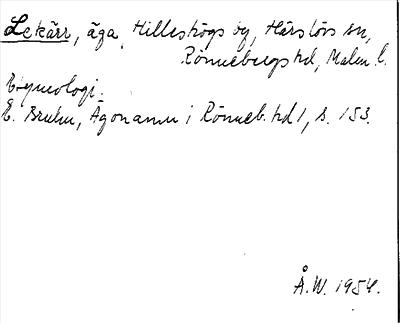 Lekärr, äga, Hilleshögs by, Härslövs sn,
Rönnebergs hd, Malm. l.
Etymologi:
E. Bruhn, Ägonamn i Rönneb. hd 1, s. 153.
Å.W. 1954.